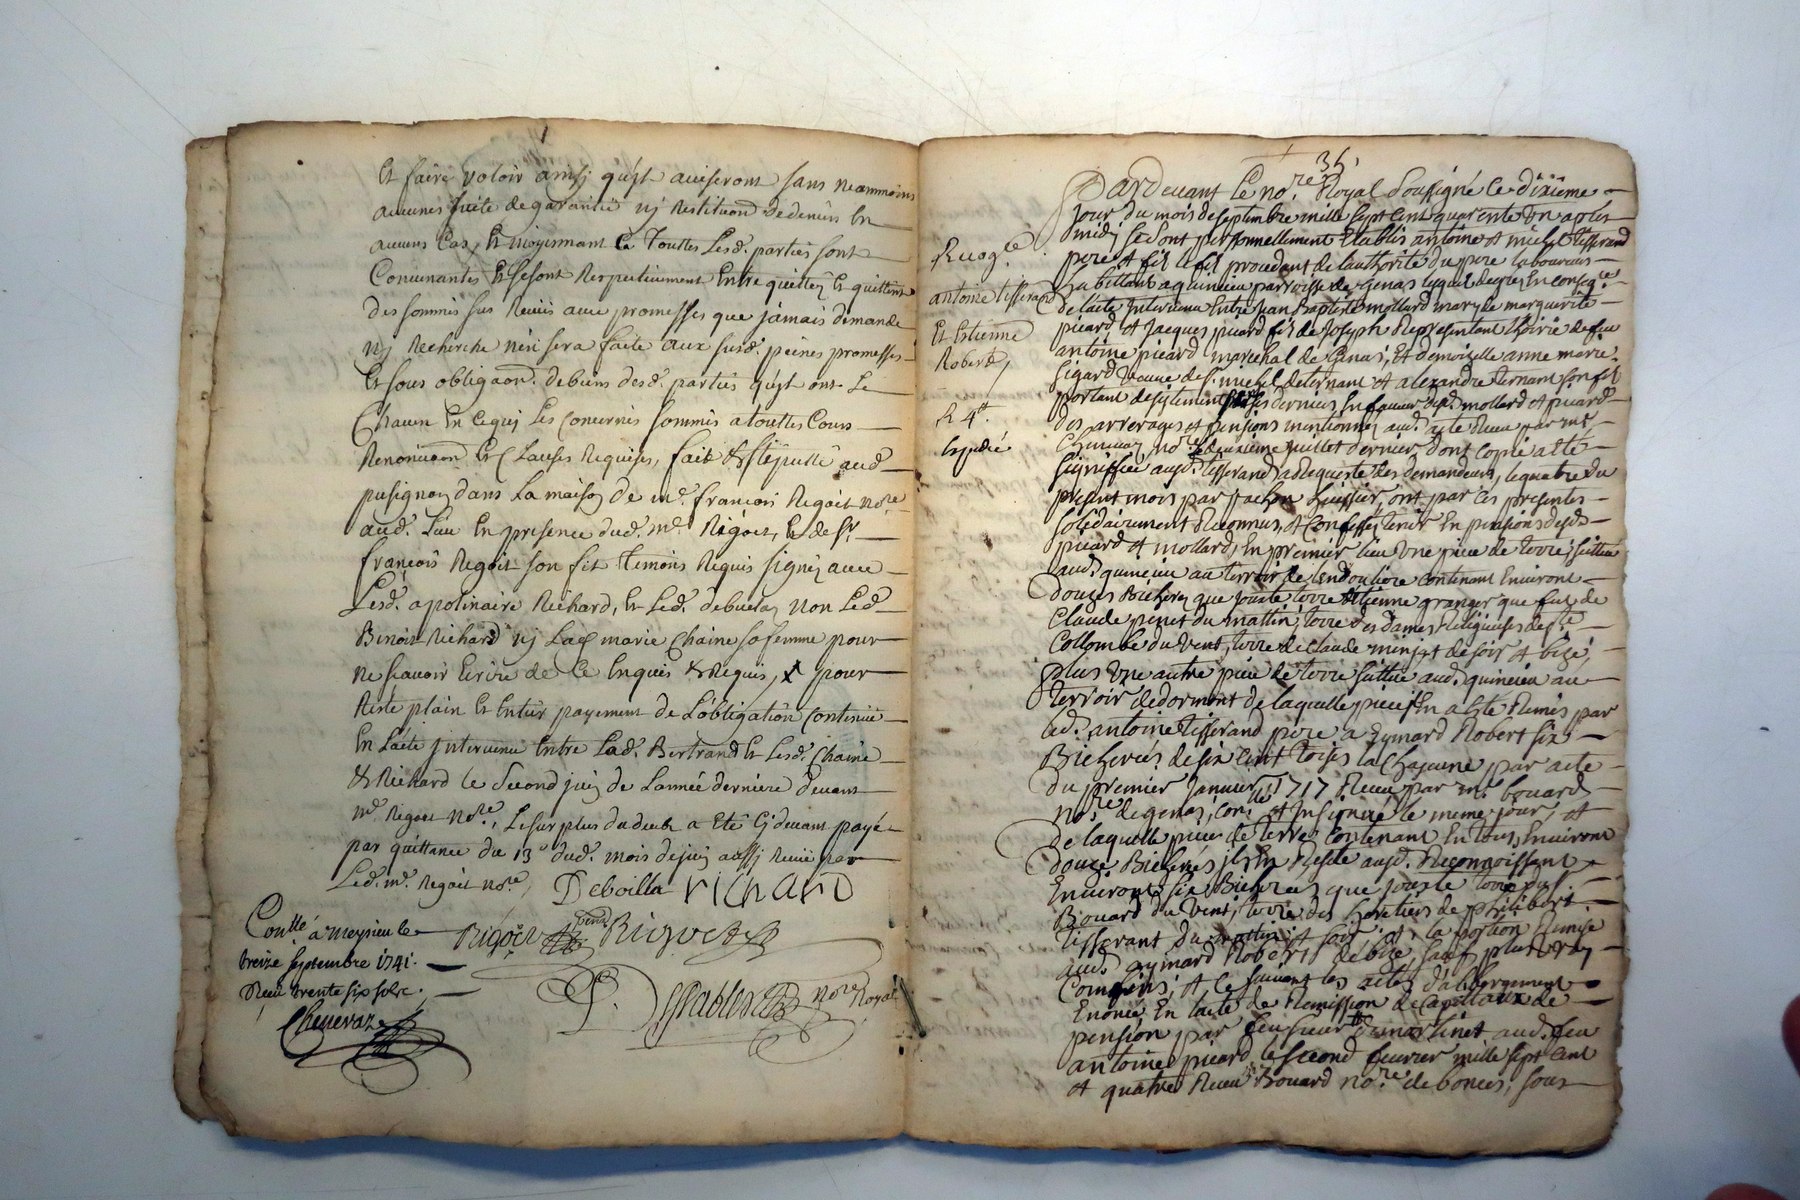 Et faire valoir ainsj qu'ist auiseront sans neammoins
aucunes suite de garantie nj restitution de deniers En
aucuns Cas, Et moyennant Ce Touttes Lesd. parties sont
Contantes Et se sont Respectiuement Entre quittéz Et quittent
des sommes sus Reuües auec promesses que jamais demande
nj Recherche n'en sera faite aux susd. peines promesses
Et sous obligaon. de biens desd. parties qu'ist ont Le
Chacun En Cequj Les Concernes sommis a touttes Cours
Renonciaon. Et Clauses Requises, fait & stippullé aud.
pusignan dans La maison de me. françois Regoit nore.
aud. Lieu En presence dud. me. Rigoit, Et de sr.
françois Regoit son fils Temoins Requis signéz auec
Lesd. apolinaire Richard, Et Led. deboeilla non Led.
Benoit Richard nj Lad. marie Chaine sa femme pour
ne sçauoir Ecrire de Ce Enquis & Requis, x pour
Reste plain Et Entier payement de L'obligation Contenüe
En L'acte jnteruenu Entre Lad. Bertrand Et Lesd. Chaine
& Richard le second juin de L'année derniere deuant
me. Regoit nore., Le surplus du deub a Eté Cj deuant payé
par quittance du 13e dud. mois de juin aussj Receüe par
Led. me. Regoit nore.
Deboilla richard
Rigoit Rigoit
Conllé à Meysieu le
treize septembre 1741.
Reçu trente six sols.
Cheneraz
nore Royal
35.
Pardeuant Le nore. Royal soussigné le dixieme
jour du mois de septembre mille sept cent quarente un apres
midj se sont personnellement Etablis antoine et michel tisserand
pere et fils le fils procedant de l'authorité du pere laboureurs
habittant a quincieu parroisse de Genas lequels de gréz En conseqce.
de l'acte Interuenu Entre Jean Baptiste mollard mary de marguerite
picard et Jacques picard fils de Joseph Representant l'hoirie de feu
antoine picard marechal de Genas, Et demoizelle anne marie
sigard Veuue de sr. michel de ternant et alexandre ternant son fils
portant desistement par ses derniers En faueur desd. mollard et picard
des arrerages et pensions mentionnez aud. acte Receu par me.
Cheneuaz nore. le deuxieme juillet dernier, dont copie a Eté
signiffiée ausd. tisserand a Requeste des demandeurs, le quatre du
present mois par huissier, ont par Ces presentes
solidairement Reconnus, et Confessés tenir En pensions desds.
picard et mollard, En premier lieu une piece de terre, sittuée
aud. quincieu au terroir de Lendouliere contenant Enuirons
Douzes Bicherez que jouste terre Ettienne granger que fut de
Claude peret du mattin, terre des dames Religieuses de ste.
Collombe du vent, terre de Claude minjat de soir et bize,
plus une autre piece de terre sittuée aud. quincieu au
terroir de dormont de laquelle piece En a Eté Remis par
led. antoine tisserand pere a Eymard Robert six
Bicherées de six cent toises la Chacune par acte
du premier Januier 1717 Receu par me. bouard
nore. de genas, Conllé et Insignué le meme jour, et
de laquelle piece de terre contenant En tous Enuirons
douze Bicherées jl En Reste ausd. Reconnoissent
Enuirons six Bicherées que jouste terre dusr.
Bouard du vent, terre des heretiers de philibert
tisserant du mattin et soir et la portion Remise
aud. aymard Robert de bize, sauf plus vray
Confins, et Ce suiuant les actes d'albergement
Enoncé En l'acte de Remission de Capittaux de
pension par feu sieur de martinet aud. feu
antoine picard le second feurier mille sept Cent
et quatre Receu Bouard nore. de bonces, sous
Recogce.
antoine tisserand
Et Estienne
Robert
R 4s.
Expedié